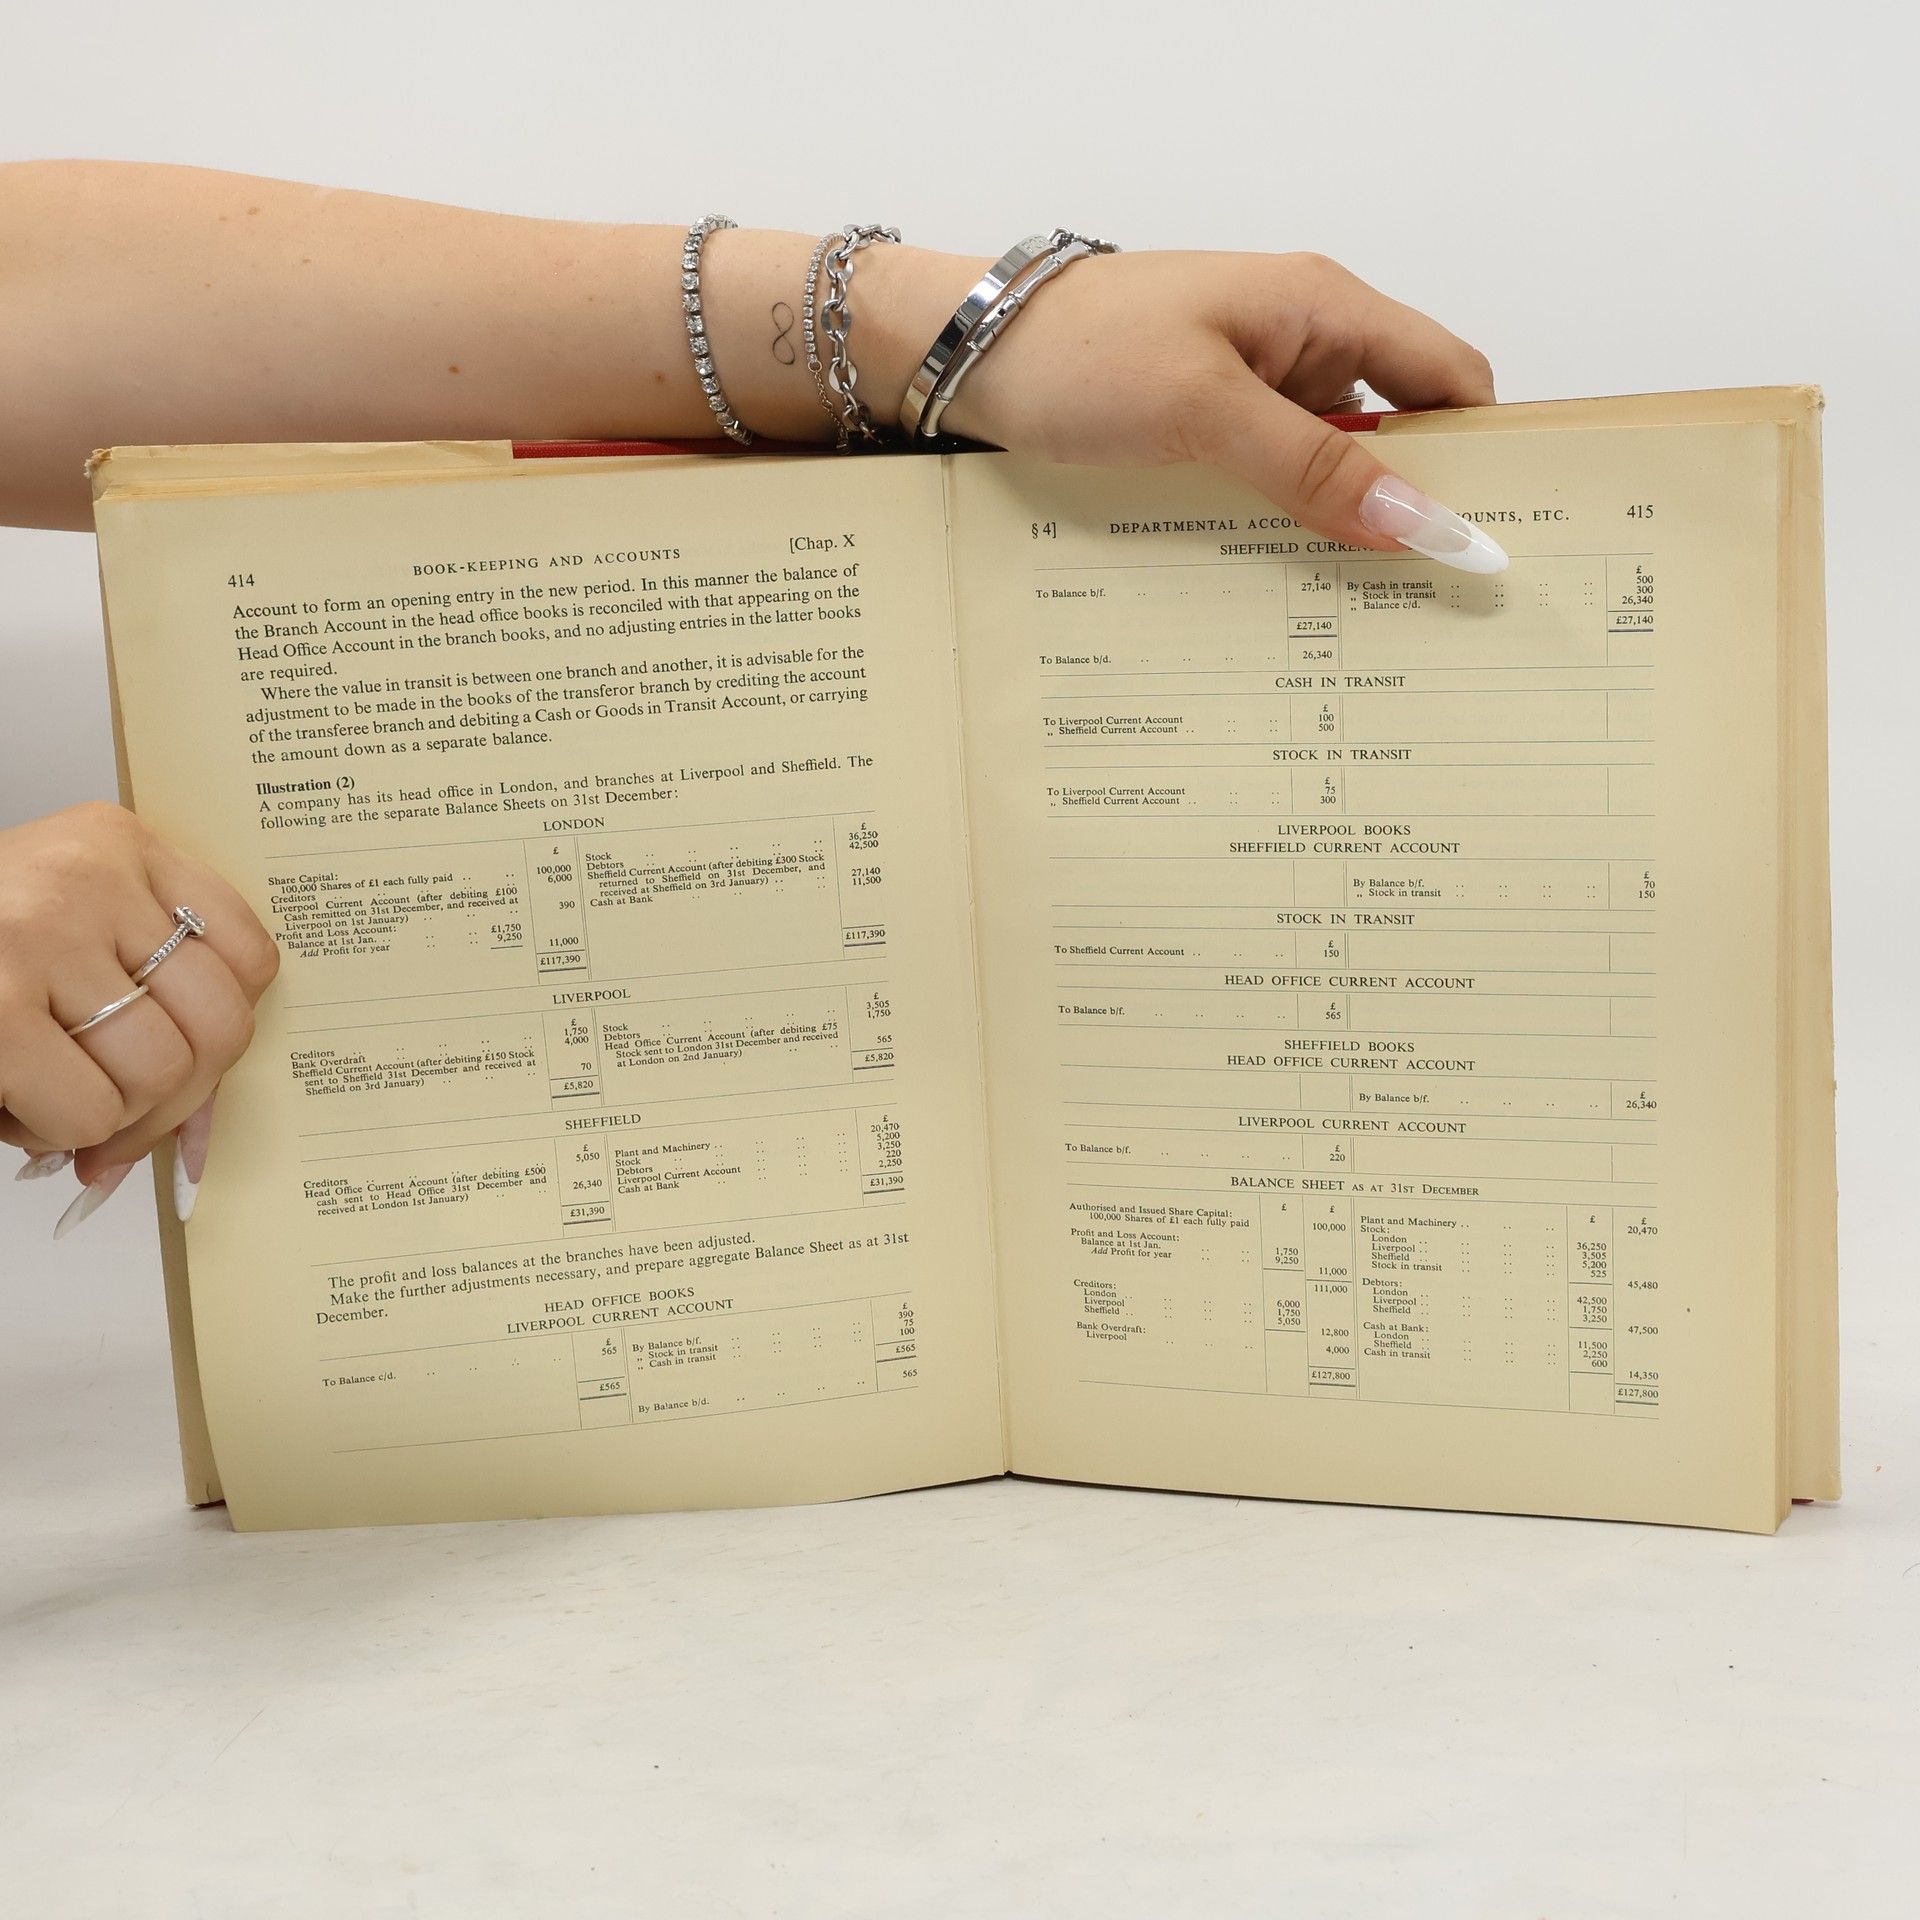 414
BOOK-KEEPING AND ACCOUNTS
[Chap. X
Account to form an opening entry in the new period. In this manner the balance of
the Branch Account in the head office books is reconciled with that appearing on the
Head Office Account in the branch books, and no adjusting entries in the latter books
are required.
Where the value in transit is between one branch and another, it is advisable for the
adjustment to be made in the books of the transferor branch by crediting the account
of the transferee branch and debiting a Cash or Goods in Transit Account, or carrying
the amount down as a separate balance.
Illustration (2)
A company has its head office in London, and branches at Liverpool and Sheffield. The
following are the separate Balance Sheets on 31st December:
LONDON
£
Share Capital:
100,000 Shares of £1 each fully paid .. .. 100,000
Creditors .. 6,000
Liverpool Current Account (after debiting £100
Cash remitted on 31st December, and received at
Liverpool on 1st January) .. .. .. 390
Profit and Loss Account:
Balance at 1st Jan. .. .. .. £1,750
Add Profit for year .. .. 9,250
11,000
£117,390
£
Stock .. .. .. .. .. 36,250
Debtors .. .. .. .. .. 42,500
Sheffield Current Account (after debiting £300 Stock
returned to Sheffield on 31st December, and
received at Sheffield on 3rd January) .. .. 27,140
Cash at Bank .. .. .. 11,500
£117,390
LIVERPOOL
£
Creditors .. .. .. .. .. 1,750
Bank Overdraft .. .. .. .. 4,000
Sheffield Current Account (after debiting £150 Stock
sent to Sheffield 31st December and received at
Sheffield on 3rd January) .. .. .. 70
£5,820
£
Stock .. .. .. .. .. 3,505
Debtors .. .. .. .. .. 1,750
Head Office Current Account (after debiting £75
Stock sent to London 31st December and received
at London on 2nd January) .. .. 565
£5,820
SHEFFIELD
£
Creditors .. .. .. .. 5,050
Head Office Current Account (after debiting £500
cash sent to Head Office 31st December and
received at London 1st January) .. .. 26,340
£31,390
£
Plant and Machinery .. .. .. .. 20,470
Stock .. .. .. .. 5,200
Debtors .. .. .. .. 3,250
Liverpool Current Account .. .. .. 220
Cash at Bank .. .. .. .. 2,250
£31,390
The profit and loss balances at the branches have been adjusted.
Make the further adjustments necessary, and prepare aggregate Balance Sheet as at 31st
December.
HEAD OFFICE BOOKS
LIVERPOOL CURRENT ACCOUNT
£
To Balance c/d. .. .. .. .. 565
£565
£
By Balance b/f. .. .. .. .. 390
„ Stock in transit .. .. .. .. 75
„ Cash in transit .. .. .. .. 100
£565
By Balance b/d. .. .. .. .. 565
§ 4]
DEPARTMENTAL ACCOU
OUNTS, ETC.
415
SHEFFIELD CURREN
£
To Balance b/f. .. .. .. .. 27,140
£27,140
To Balance b/d. .. .. .. .. 26,340
£
By Cash in transit .. .. .. .. 500
„ Stock in transit .. .. .. .. 300
„ Balance c/d. .. .. .. .. 26,340
£27,140
CASH IN TRANSIT
£
To Liverpool Current Account .. .. 100
„ Sheffield Current Account .. .. .. 500
STOCK IN TRANSIT
£
To Liverpool Current Account .. .. 75
„ Sheffield Current Account .. .. .. 300
LIVERPOOL BOOKS
SHEFFIELD CURRENT ACCOUNT
£
By Balance b/f. .. .. .. .. 70
„ Stock in transit .. .. .. .. 150
STOCK IN TRANSIT
£
To Sheffield Current Account .. .. .. 150
HEAD OFFICE CURRENT ACCOUNT
£
To Balance b/f. .. .. .. .. 565
SHEFFIELD BOOKS
HEAD OFFICE CURRENT ACCOUNT
£
By Balance b/f. .. .. .. .. 26,340
LIVERPOOL CURRENT ACCOUNT
£
To Balance b/f. .. .. .. .. 220
BALANCE SHEET AS AT 31ST DECEMBER
£ £
Authorised and Issued Share Capital:
100,000 Shares of £1 each fully paid 100,000
Profit and Loss Account:
Balance at 1st Jan. 1,750
Add Profit for year .. .. 9,250
11,000
111,000
Creditors:
London .. .. .. .. 6,000
Liverpool .. .. .. 1,750
Sheffield .. .. .. .. 5,050
12,800
Bank Overdraft:
Liverpool .. .. .. 4,000
£127,800
£ £
Plant and Machinery .. .. .. 20,470
Stock:
London .. .. .. .. 36,250
Liverpool .. .. .. .. 3,505
Sheffield .. .. .. .. 5,200
Stock in transit .. .. 525
45,480
Debtors:
London .. .. .. 42,500
Liverpool .. .. .. .. 1,750
Sheffield .. .. .. 3,250
47,500
Cash at Bank:
London .. .. .. 11,500
Sheffield .. .. .. 2,250
Cash in transit .. .. 600
14,350
£127,800